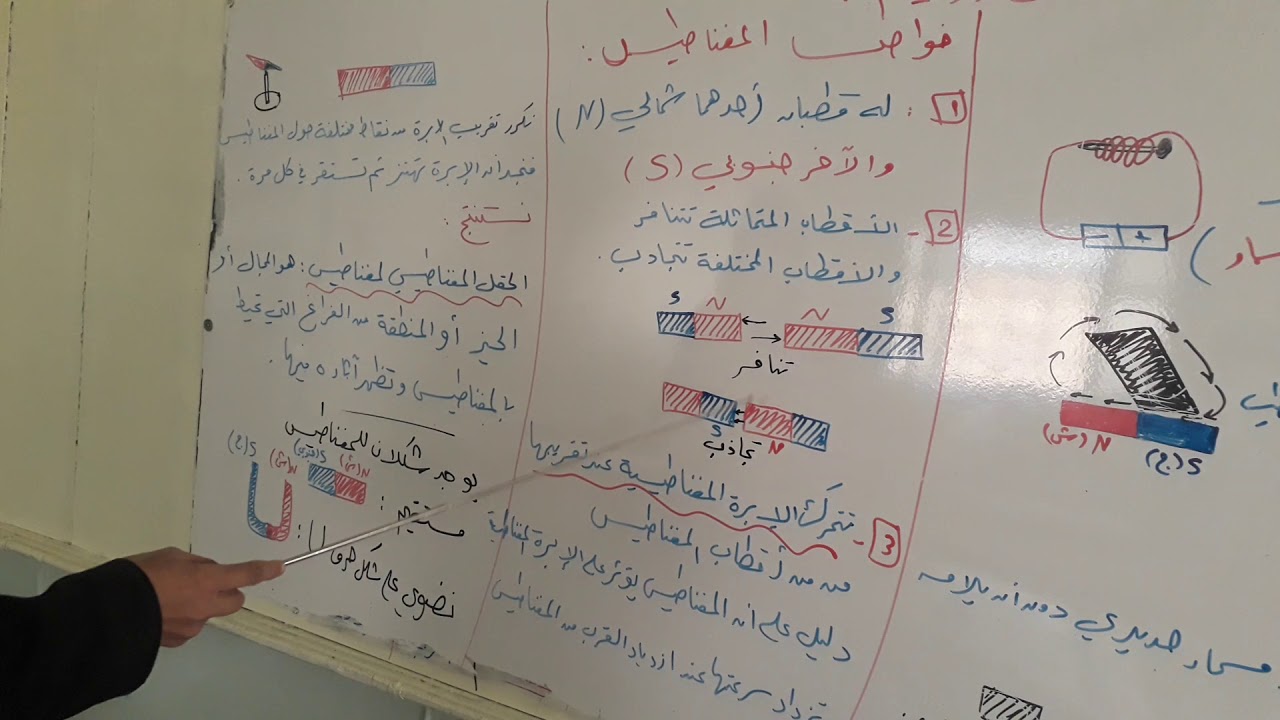 خواص المغناطيس:
1: له قطبان أحدهما شمالي (N)
والآخر جنوبي (S)
2- الأقطاب المتماثلة تتنافر
والأقطاب المختلفة تتجاذب.
S N N S
تنافر
S N
تجاذب
3- تتحرك الإبرة المغناطيسية عند تقريبها
من من أقطاب المغناطيس
دليل على أن المغناطيس يؤثر على الإبرة المغناطيسية
تزداد سرعتها عند ازدياد القرب من المغناطيس
نكرر تقريب الإبرة من نقاط مختلفة حول المغناطيس
فنجد أن الإبرة تهتز ثم تستقر في كل مرة.
نستنتج:
الحقل المغناطيسي لمغناطيس: هو المجال أو
الحيز أو المنطقة من الفراغ التي تحيط
بالمغناطيس وتظهر آثاره فيها.
يوجد شكلان للمغناطيس
مستقيم:
N(ش)
S(ج) N(ش)
نضوي على شكل حرف U:
- +
N(ش) S(ج)
مسمار حديدي دون أن يلامسه